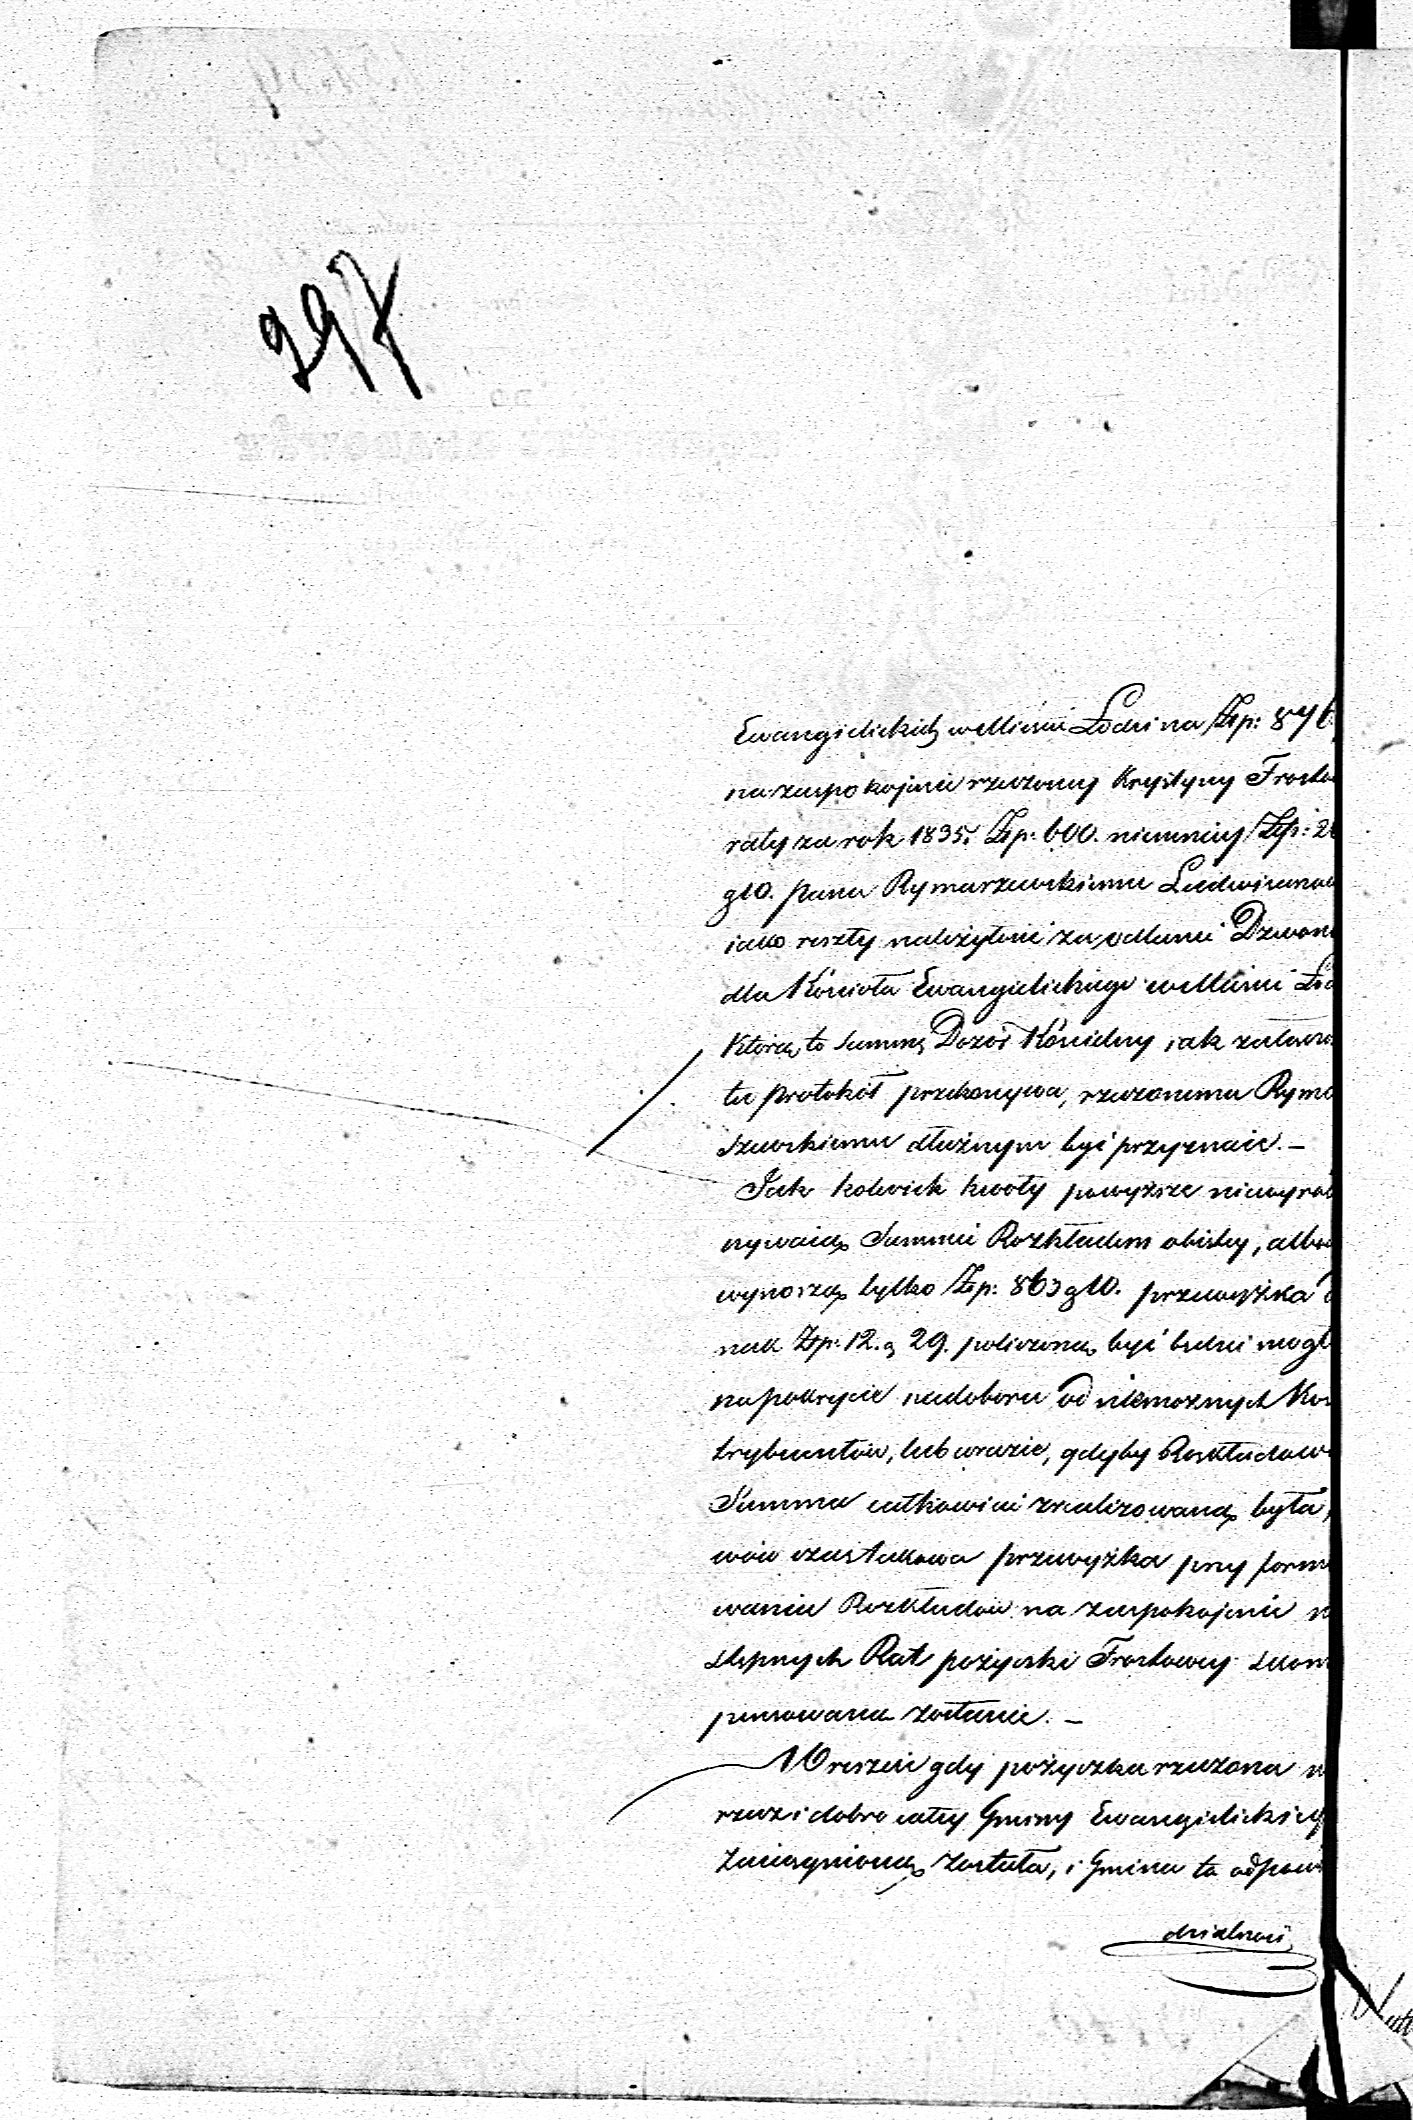 297
Ewangielickich w Mieście Łodzi na Złp: 876.
na zaspokojenie rzeczoney Krystyny Frosto
raty za rok 1835. Złp: 600. niemniey Złp: 2
g 10. pana Rymarzewskiemu Ludwisarzow
iako reszty należytości za odlanie Dzwon
dla Kościoła Ewangielickiego w Mieście Ło
Którą to Summę Dozór Kościelny, iak załączo
ta protokół przekonywa, rzeczonemu Ryma
szewskiemu dłużnym być przyznaie. –
Jak kolwiek kwoty powyższe niewyrów
nywaią Summie Rozkładem obiętey, albo
wynoszą tylko Złp: 863 g 10. przewyżka
nak Złp: 12. g 29. policzoną być będzie mogł
na pokrycie niedoboru od niemożnych Kon
trybuentów, lub wrazie, gdyby Rozkładow
Summa całkowicie zrealizowaną była,
wów czas takowa przewyżka przy formo
waniu Rozkładów na zaspokojenie n
stępnych Rat pożyczki Frostowey skom
pensowana zostanie. –
Wreszcie gdy pożyczka rzeczona n
rzecz i dobro całey Gminy Ewangielickiey
Zaciągnioną została, i Gmina ta odpowi
dzialność